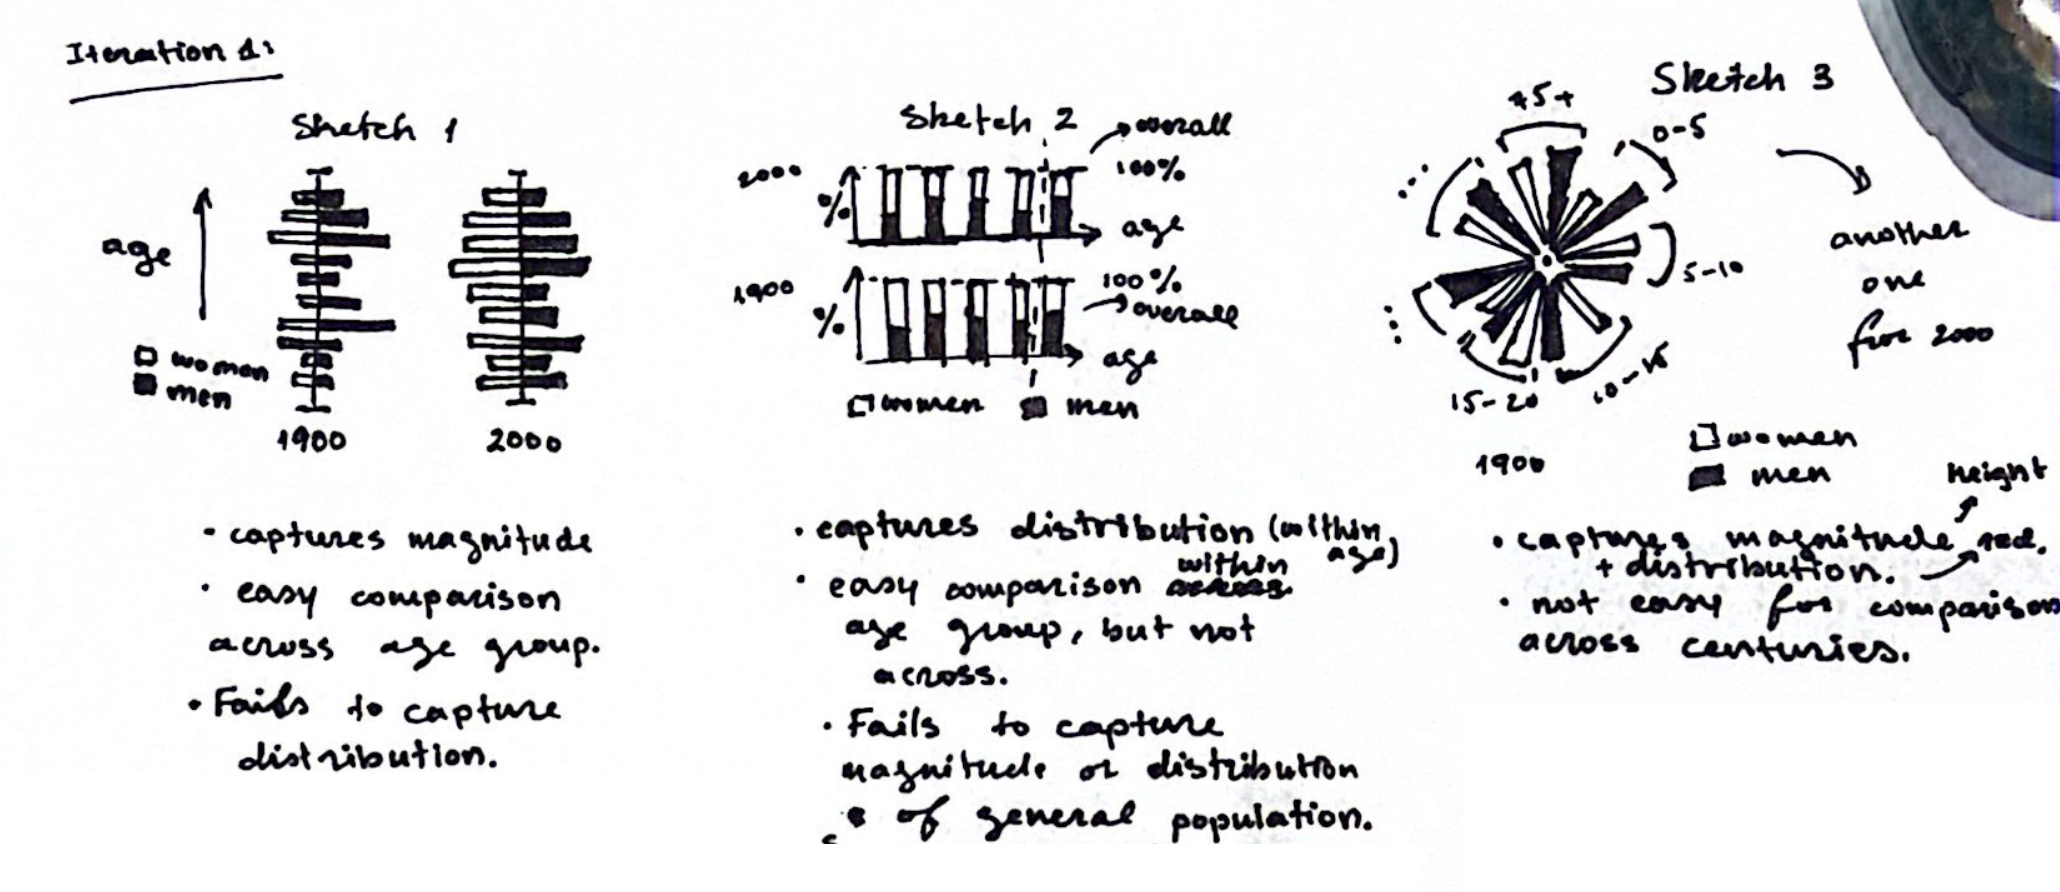 Iteration 1:
Sketch 1
age
women
men
1900
2000
• captures magnitude
• easy comparison
across age group.
• Fails to capture
distribution.
Sketch 2
overall
2000
%
100%
age
1900
%
100%
overall
age
women
men
• captures distribution (within
age)
within
• easy comparison
age group, but not
across.
• Fails to capture
magnitude or distribution
of general population.
Sketch 3
75+
0-5
5-10
10-15
15-20
...
...
another
one
for 2000
1900
women
men
height
• captures magnitude
+ distribution.
• not easy for comparison
across centuries.